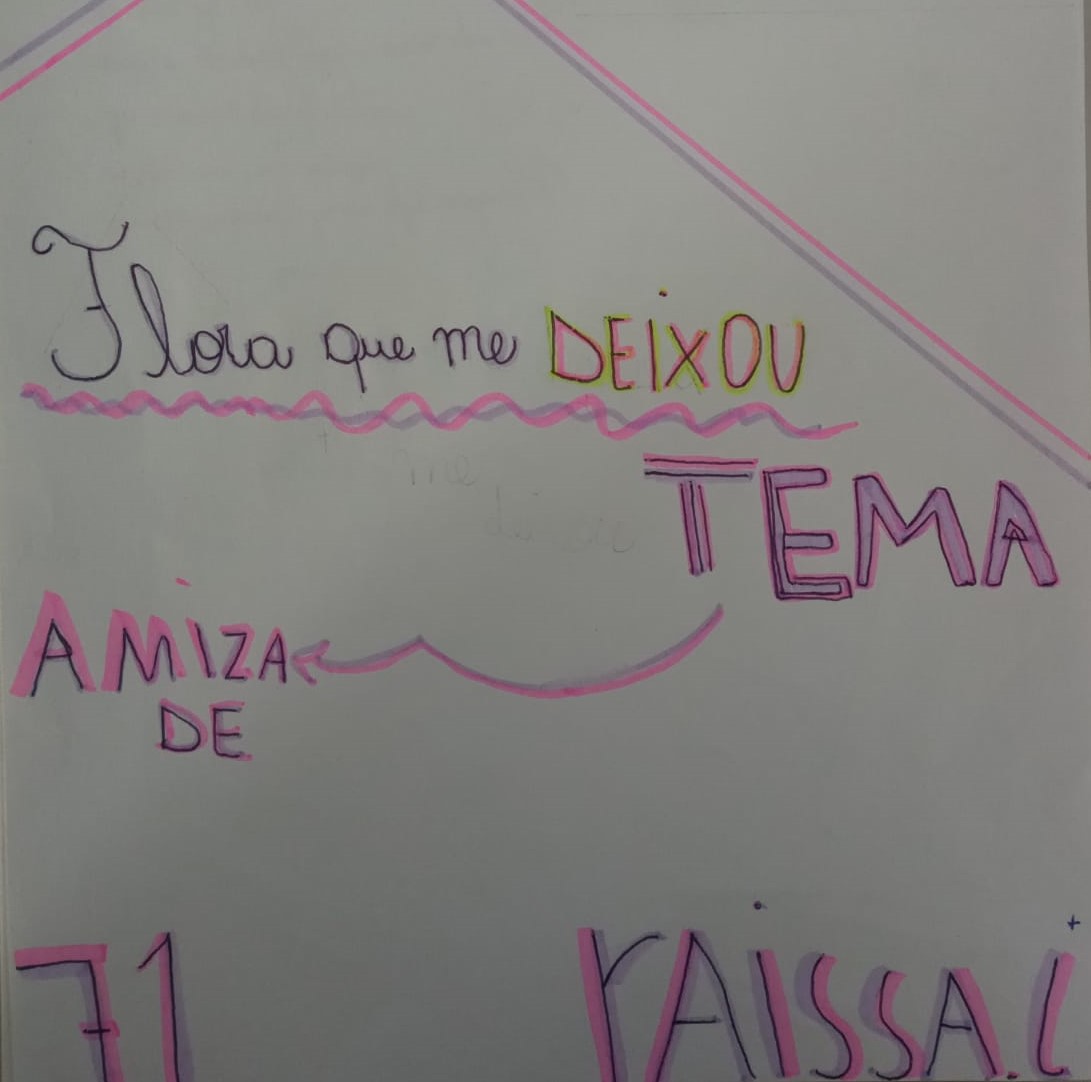 Flora que me DEIXOU
TEMA
AMIZA
DE
71 rAissA.i